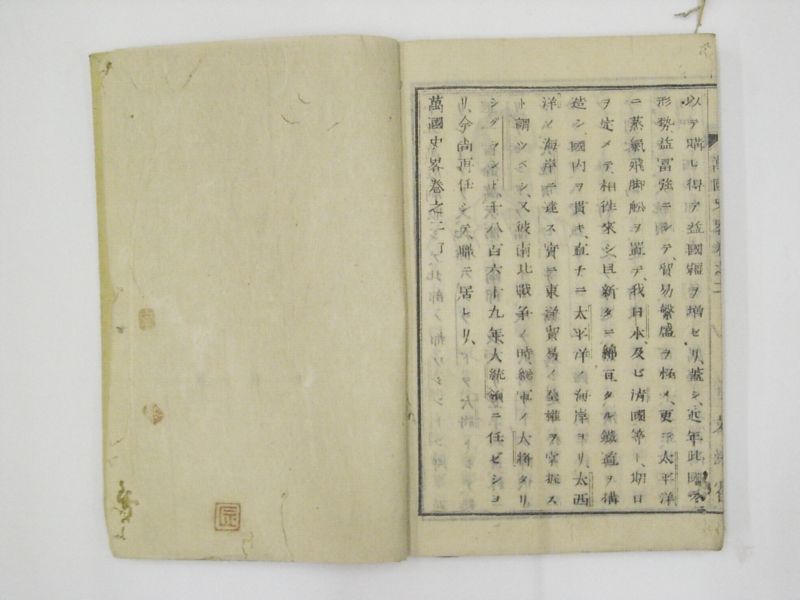 以テ購ヒ得テ益國疆ヲ増セリ、蓋シ、近年此國ノ
形勢、益富強ニシテ、貿易繁盛ヲ極メ、更ニ太平洋
ニ蒸氣飛脚舩ヲ置テ、我日本、及ビ清國等ト、期日
ヲ定メテ、相徃來シ、且新タニ綿亘タル鐵道ヲ搆
造シ、國内ヲ貫キ、直チニ太平洋ノ海岸ヨリ、太西
洋ノ海岸ニ達ス、實ニ東洋貿易ノ全權ヲ掌握ス
ト謂ツベシ、又彼南北戰爭ノ時、總軍ノ大將タリ
シグランド、千八百六十九年、大統領ニ任ゼショ
リ、今尚再任シテ、職ニ居レリ、
萬國史畧卷之二